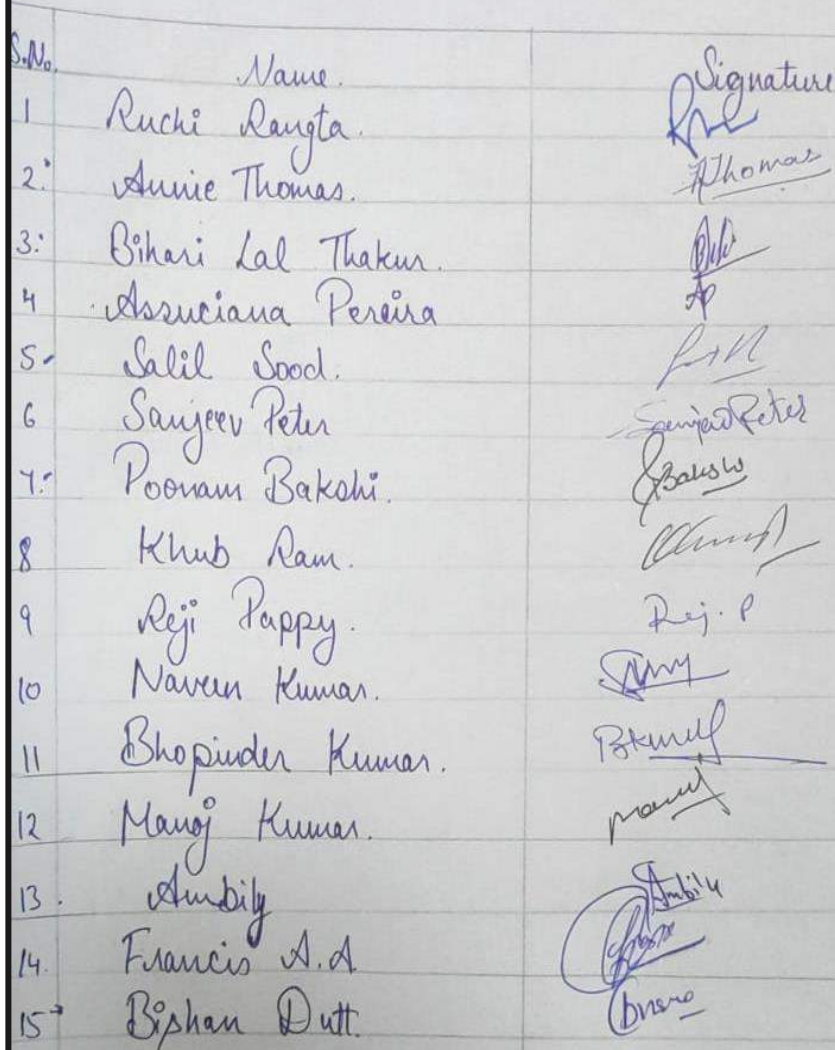 S.No. Name. Signature
1 Ruchi Rangta.
2. Annie Thomas. AThomas
3. Bihari Lal Thakur.
4 Assuciana Pereira AP
5. Salil Sood.
6 Sanjeev Peter Sanjeev Peter
7. Poonam Bakshi. Bakshi
8 Khub Ram.
9 Reji Pappy. Rej. P
10 Naveen Kumar.
11 Bhopinder Kumar.
12 Manoj Kumar. Manoj
13. Ambily Ambily
14. Francis A.A
15 Bishan Dutt.